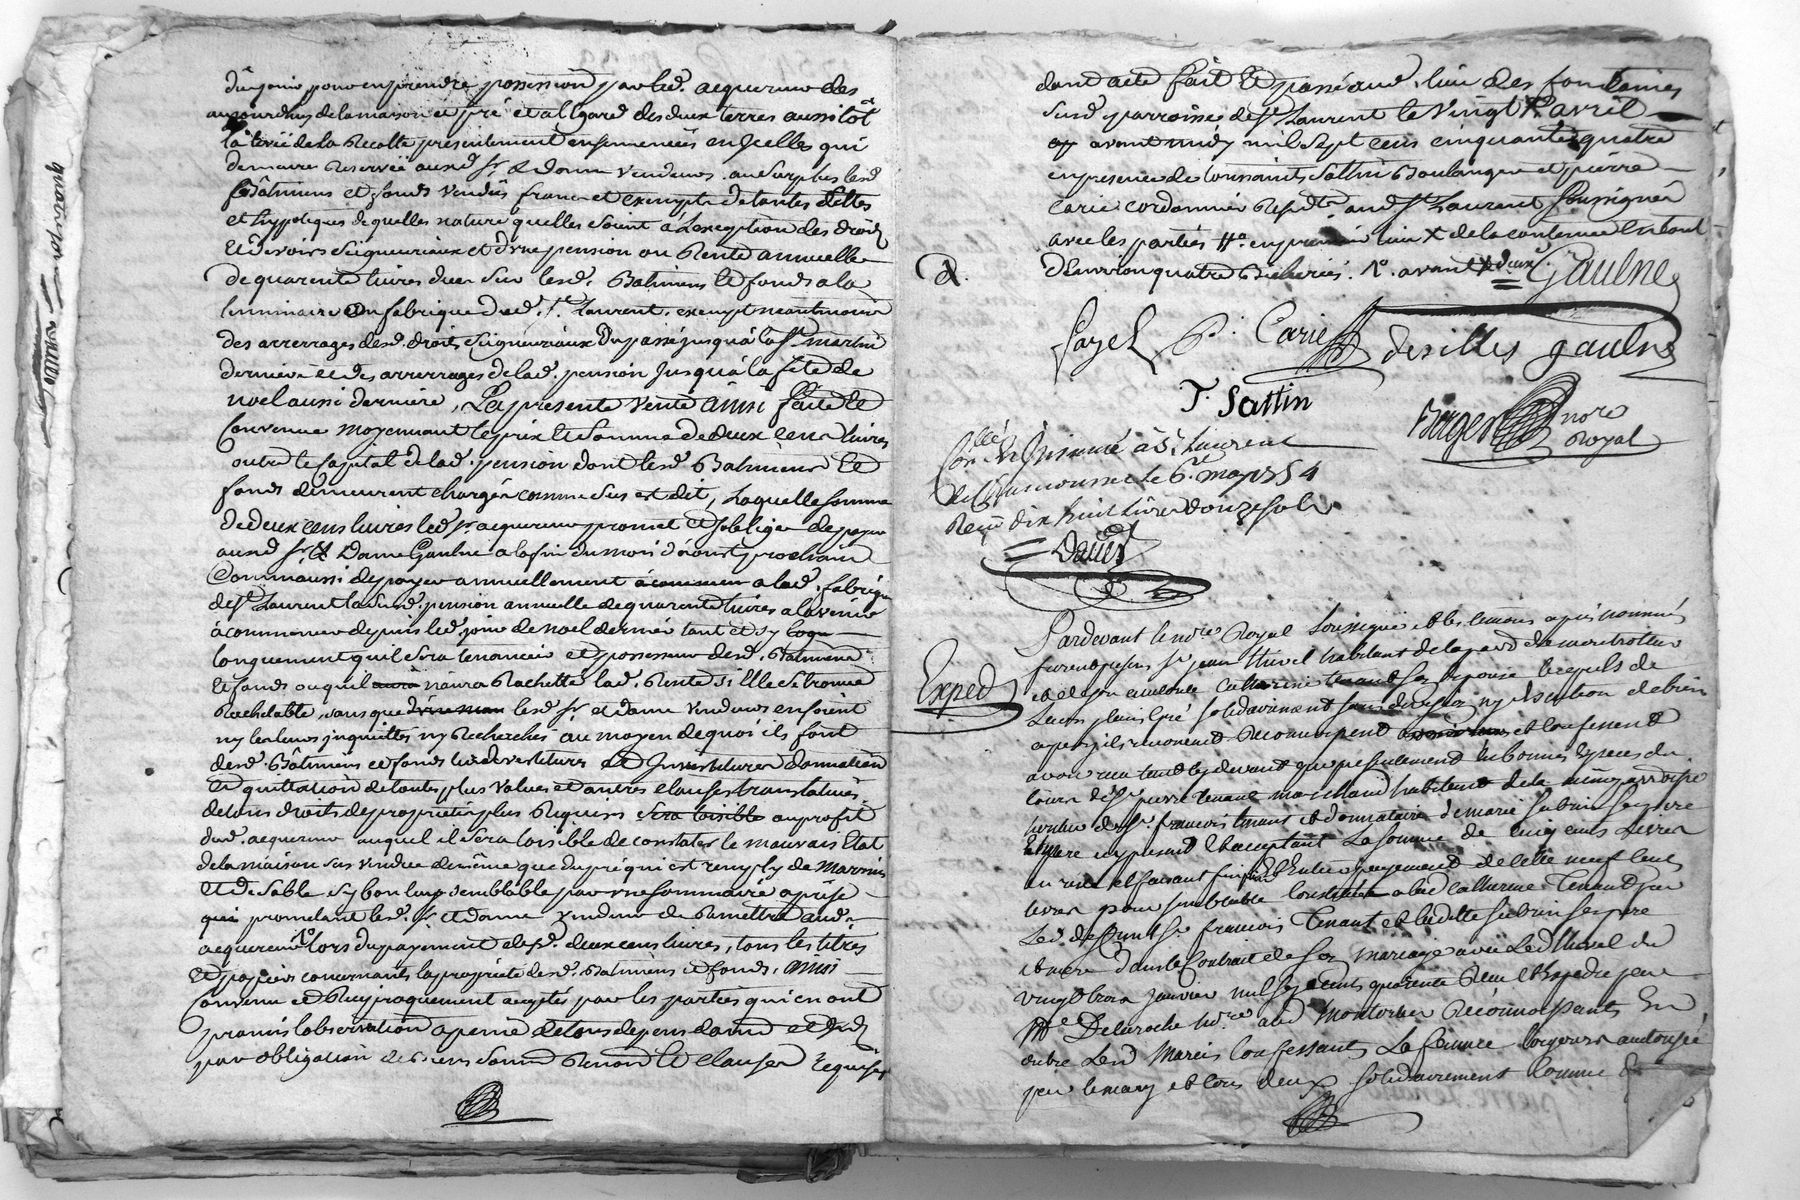 pour en prendre possession par led. acquereur des
aujourdhuy de la maison et pré et a l'Egard des deux terres aussitôt
la levée de la Recolte presentement ensemencées en Jcelles qui
demeure Reservée auxd. Sr. & dame vendeurs. au surplus lesd.
Bâtimens et fonds vendûs francs et exempts de toutes dettes
et hypoteques de quelles nature qu'elles soient à L'exeption des droits
et devoirs Seigneuriaux et d'une pension ou Rente annuelle
de quarente livres dues Sur lesd. Batimens & fonds a la
luminaire ou fabrique dud. St. Laurent. exempt neantmoins
des arrerages desd. droits Seigneuriaux du passé jusqu'à la St. martin
derniere et des arrerages de lad. pension Jusqu'à la fête de
noel aussi derniere, La presente vente ainsi faite &
Convenue moyennant le prix & Somme de deux cens livres
outre le Capital de lad. pension dont lesd. Batimens &
fonds demeurent chargés comme dus est dit, Laquelle somme
de deux cens livres led. Sr. acquereur promet & s'oblige de payer
auxd. Sr. & Dame Gaulne a la fin du mois d'aoust prochain
Comm'aussi de payer annuellement à commencer a lad. fabrique
de St. Laurent la Susd. pension annuelle de quarente livres a l'avenir
à commencer depuis led. jour de noel dernier tant et sy longu
longuement quil Sera tenancier et possesseur desd. Batimens
& fonds ou quil aura n'aura Rachetté lad. Rente si Elle se trouve
Rachetable, sans que lesd. Sr. et dame vendeurs en soient
ny les leurs jnquiettés ny Recherchés au moyen de quoi ils font
desd. Bâtimens et fonds les devestitures et Jnvestitures donnation
et quittation de toutes plus values et autres clauses translatives
de tous droits de proprieté plus Requises Sera loisible au profit
dud. acquereur auquel il Sera loisible de constater le mauvais Etat
de la maison Sus vendue de même que du pré qui est remply de
et de Sable, sy bon luy semblable par une sommaire aprise
que promettent lesd. Sr. et dame vendeurs de Remettre aud.
acquereur lors du payement desd. deux cens livres, tous les titres
et papiers concernants la proprieté desd. Batimens et fonds, ainsi
Convenu et Reciproquement acceptés par les parties qui en ont
promis l'observation a peine de tous depens damd. et
par obligation de Biens Soumd. Renond. & clauses requises
dont acte fait & passé aud. lieu des fontaines
Susd. parroisse de St. Laurent le vingt avril
avant midy mil Sept cens cinquante quatre
en presence de toussaints Sattin Boulanger et pierre
Carié cordonnier Residts. aud. St. Laurent Soussignés
avec les parties
quatre
Gaulne
Fayel P. Carié desilles gaulne
T. Sattin
Berger nore
Royal
Con. & Jnsinué à St. Laurent
de Chamousset le 6e. may 1754
Reçu dix huit livres douze sols
d.
Exped.
Pardevant le nore. Royal Soussigné et les temoins apres nommés
furent presens Sr. jean thivel habitant de la parr.
et de Son authorité Catherine tenant Son epouse lesquels de
Leurs plein Gré solidairement sans division ny discution de biens
a quoy ils renoncent Reconnoissent et confessent
avoir receu tant cy devant que presentement en bonnes Especes du
cours de Sr. pierre tenant marchand habitant de la meme parroisse
heritier de Sr. francois tenant et donnataire de marie Subrin Ses pere
& mere icy present & acceptant La Somme de cinq cens Livres
en reste et faisant Entier payement de celle neuf cens
livres pour semblable constituée a lad. Catherine Tenant par
Led. deffunt Sr. francois Tenant et ladite Subrin Ses pere
et mere dans le Contrait de Son mariage avec Led. thivel du
vingt trois Janvier mil Sept cents quarante Receu & Expedié par
Me. Delaroche nore. aud. Montortier Reconnoissants En
outre Lesd. Mariés Confessants La femme toujours authorisée
par le mary et tous deux Solidairement comme